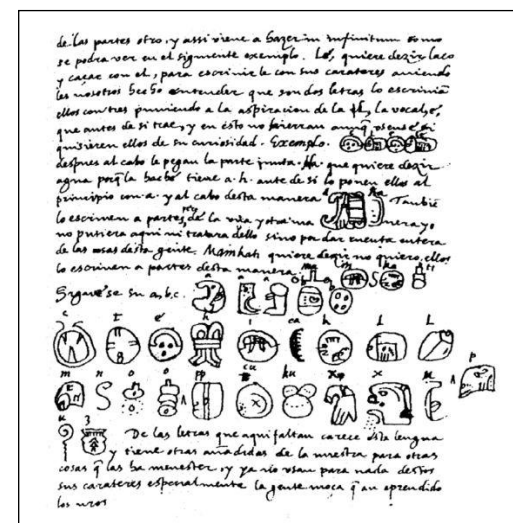 de las partes otro, y assi viene a hazer in infinitum como
se podra ver en el siguiente exemplo. Lé, quiere dezir laço
y caçar con el, para escrivirle con sus carateres aviendo
les nosotros hecho entender que son dos letras lo escrivian
ellos con tres puniendo a la aspiracion de la l, la vocal é,
que antes de si trae, y en esto no hierran aunq̃ usense, si
quisieren ellos de su curiosidad. Exemplo.
despues al cabo le pegan la parte junta. Ha que quiere dezir
agua porq̃ la hache tiene a. h. ante de si lo ponen ellos al
principio con a. y al cabo desta manera a ha Tambiē
lo escriven a partes de la una y otra ma nera yo
no pusiera aqui ni tratara dello sino por dar cuenta entera
de las cosas desta gente. Mainkati quiere dezir no quiero, ellos
lo escriven a partes desta manera ma i n ka ti
Siguese su a, b, c. a a a b b
c t e h i ca k l l
m n o o pp cu ku x x u p
u z
De las letras que aqui faltan carece esta lengua
y tiene otras añadidas de la nuestra para otras
cosas q̃ las ha menester, y ya no usan para nada destos
sus carateres especialmente la gente moça q̃ an aprendido
los nros